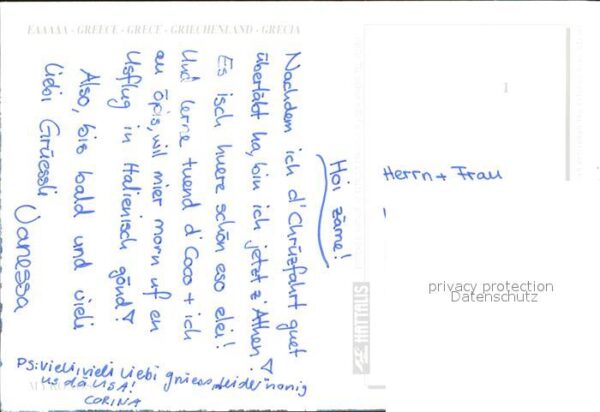 ΕΛΛΑΔΑ - GREECE - GRECE - GRIECHENLAND - GRECIA
Hoi zäme!
Nachdem ich d'Chrüzfahrt guet
überläbt ha, bin ich jetzt z'Athen!
Es isch huere schön eso elei!
Und lerne tuend d'Coco + ich
au öpis, will mier morn uf en
Usflug in Italienisch gönd!
Also, bis bald und vieli
liebi Grüessli Vanessa
PS: Vieli, vieli liebi grüess, leider nonig
us dä USA!
CORINA
HAITALIS
Herrn + Frau
privacy protection
Datenschutz